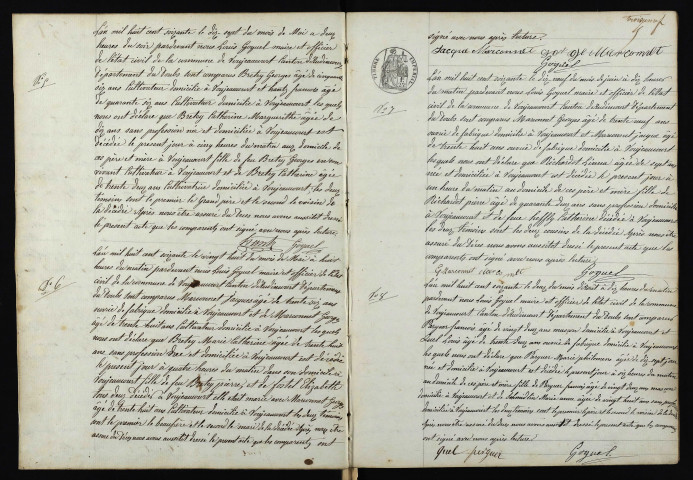 L'an mil huit cent soixante le dix sept du mois de Mai a deux
heures du soir pardevant nous Louis Goguel maire et officier
de l'état civil de la commune de Voujeaucourt Canton d'Audincourt
Département du doubs sont comparus Bretey George agé de cinquante
six ans Cultivateur domicilié à Voujeaucourt et françois agé
de quarante six ans Cultivateur domicilié à Voujeaucourt lesquels
nous ont déclaré que Bretey Catherine Marguerithe agée de
dix ans sans profession née et domiciliée à Voujeaucourt est
décédée le présent jour à cinq heures du matin au domicile de
ces père et mère à Voujeaucourt fille de feu Bretey George en son
vivant Cultivateur à Voujeaucourt et de Bretey Catherine agée
de trente deux ans Cultivatrice domiciliée à Voujeaucourt les deux
temoins sont le premier le Grand père et le second le cousin de
la décédée Après nous être assuré du Décès nous avons aussitôt dressé
le présent acte que les comparants ont signé avec nous après lecture
Goguel
N° 6
L'an mil huit cent soixante le vingt huit du mois de Mai à huit
heures du matin pardevant nous Louis Goguel maire et officier de l'état
civil de la commune de Voujeaucourt Canton d'Audincourt Département
du doubs sont comparus Marconnet Jacques agé de trente six ans
ouvrier de fabrique domicilié à Voujeaucourt et Marconnet George
agé de trente huit ans Cultivateur domicilié à Voujeaucourt lesquels
nous ont déclaré que Bretey Marie Catherine agée de trente huit
ans, sans profession née et domiciliée à Voujeaucourt est décédée
le présent jour à quatre heures du matin dans son domicile à
Voujeaucourt fille de feu Bretey pierre et de Elizabeth
tous deux décédés à Voujeaucourt elle était mariée avec Marconnet George
agé de trente huit ans cultivateur domicilié à Voujeaucourt les deux témoins
sont le premier le beaufrère et le second le mari de la décédée Après nous être
assuré du Décès nous avons aussitôt dressé le présent acte que les comparants ont
signé avec nous après lecture
Jacques Marconnet George Marconnet
Goguel
N° 7
L'an mil huit cent soixante le dix neuf du mois de juin à dix heures
du matin pardevant nous Louis Goguel maire et officier de l'état
civil de la commune de Voujeaucourt Canton d'Audincourt Département
du doubs sont comparus Marconnet George agé de trente neuf ans
ouvrier de fabrique domicilié à Voujeaucourt et Marconnet jacques agé
de trente huit ans ouvrier de fabrique domicilié à Voujeaucourt
lesquels nous ont déclaré que Richardot agée de sept ans
née et domiciliée à Voujeaucourt est décédée le présent jour à
un heure du matin au domicile de ces père et mère fille de
Richardot pierre agé de quarante deux ans sans profession domicilié
à Voujeaucourt et de feue Catherine décédée à Voujeaucourt
les deux témoins sont les deux cousins de la décédée Après nous être
assuré du Décès nous avons aussitôt dressé le présent acte que les
comparants ont signé avec nous après lecture
Goguel
N° 8
L'an mil huit cent soixante le vingt huit du mois à dix heures du matin
pardevant nous Louis Goguel maire et officier de l'état civil de la commune
de Voujeaucourt Canton d'Audincourt Département du doubs sont comparus
françois agé de vingt deux ans maçon domicilié à Voujeaucourt et
Louis agé de trente deux ans ouvrier de fabrique domicilié à Voujeaucourt
lesquels nous ont déclaré que Marie agée de dix sept
née et domiciliée à Voujeaucourt est décédée le présent jour à six heures du matin
au domicile de ces père et mère fille de françois agé de vingt deux ans maçon
domicilié à Voujeaucourt et de Marie Anne agée de vingt huit ans sans profession
domiciliée à Voujeaucourt les deux témoins sont le premier le père et le second le voisin de la
décédée Après nous être assuré du Décès nous avons aussitôt dressé le présent acte que les comparants
ont signé avec nous après lecture
Goguel